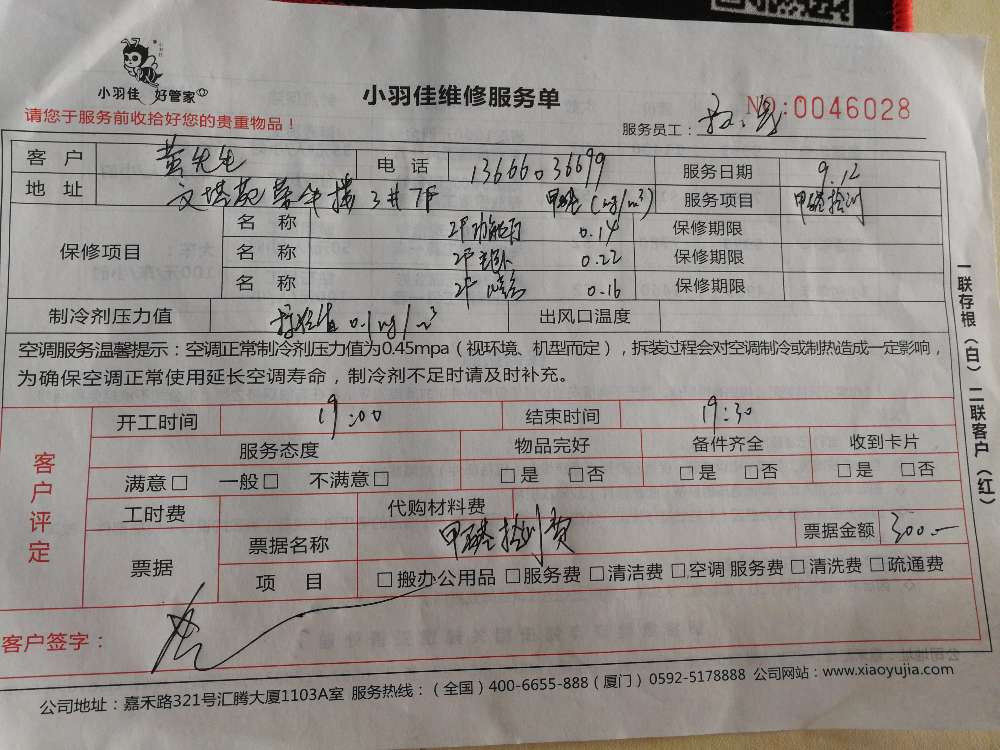 小羽佳 好管家
小羽佳维修服务单
NO:0046028
请您于服务前收拾好您的贵重物品！
服务员工：
客户 黄先生 电话 13666036699 服务日期 9.12
地址 3# 7F 甲醛(mg/m³) 服务项目 甲醛检测
保修项目
名称 2F 功能间 0.14 保修期限
名称 2F 主卧 0.22 保修期限
名称 2F 0.16 保修期限
制冷剂压力值 标准值 0.1mg/m³ 出风口温度
空调服务温馨提示：空调正常制冷剂压力值为0.45mpa（视环境、机型而定），拆装过程会对空调制冷或制热造成一定影响，
为确保空调正常使用延长空调寿命，制冷剂不足时请及时补充。
客户评定
开工时间 19:00 结束时间 19:30
服务态度 物品完好 备件齐全 收到卡片
满意□ 一般□ 不满意□ □是 □否 □是 □否 □是 □否
工时费 代购材料费
票据 票据名称 甲醛检测费 票据金额 300.—
项目 □搬办公用品 □服务费 □清洁费 □空调服务费 □清洗费 □疏通费
客户签字：
公司地址：嘉禾路321号汇腾大厦1103A室 服务热线：（全国）400-6655-888（厦门）0592-5178888 公司网站：www.xiaoyujia.com
一联存根（白）二联客户（红）